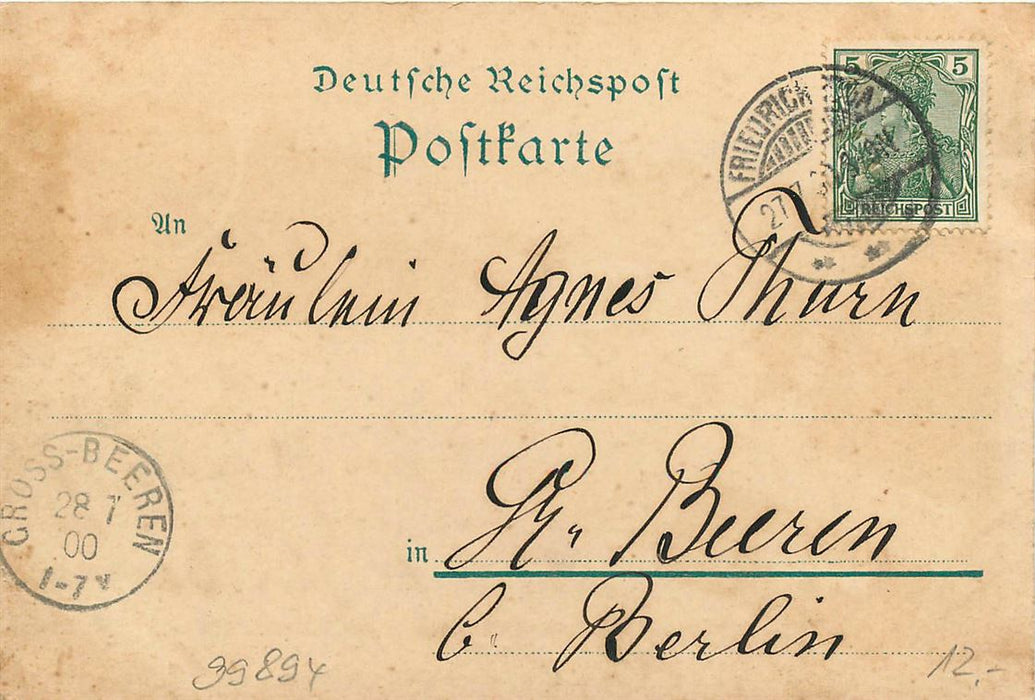 Deutsche Reichspost
Postkarte
5 5
REICHSPOST
FRIEDRICH
27.7.
An
Fräulein Agnes Thurn
GROSS-BEEREN
28 7
00
1-7 V
in Gr. Beeren
b. Berlin
12.-